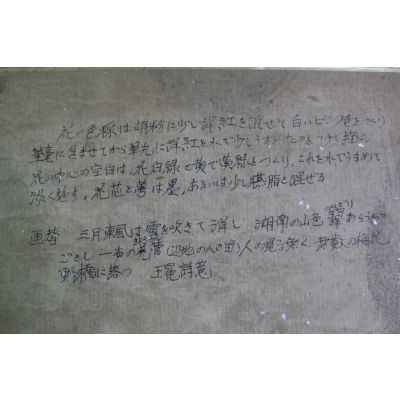 花の色採は胡粉に少し洋紅を混ぜて白いピンク色をつくり
筆毫に含ませてから筆先に洋紅を水で少しうすめたのをつけて描く。
花の中心の空白は、花白緑と黄で黄緑をつくり、これを水でうすめて
淡く施す。花芯と萼は墨、あるいは少し臙脂を混ぜる
画賛 三月東風は雪を吹きて消し 湖南の山色 翠 あらうが
みどり
ごとし 一声の羌管 (辺地の人の笛) 人の見る無く 無数の梅花
野橋に落つ 王冕詩意